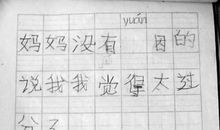 yuán
妈妈没有 因的
说我我觉得太过
分了